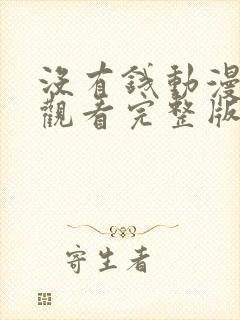 沒有錢動漫
觀看完整版
寄生者